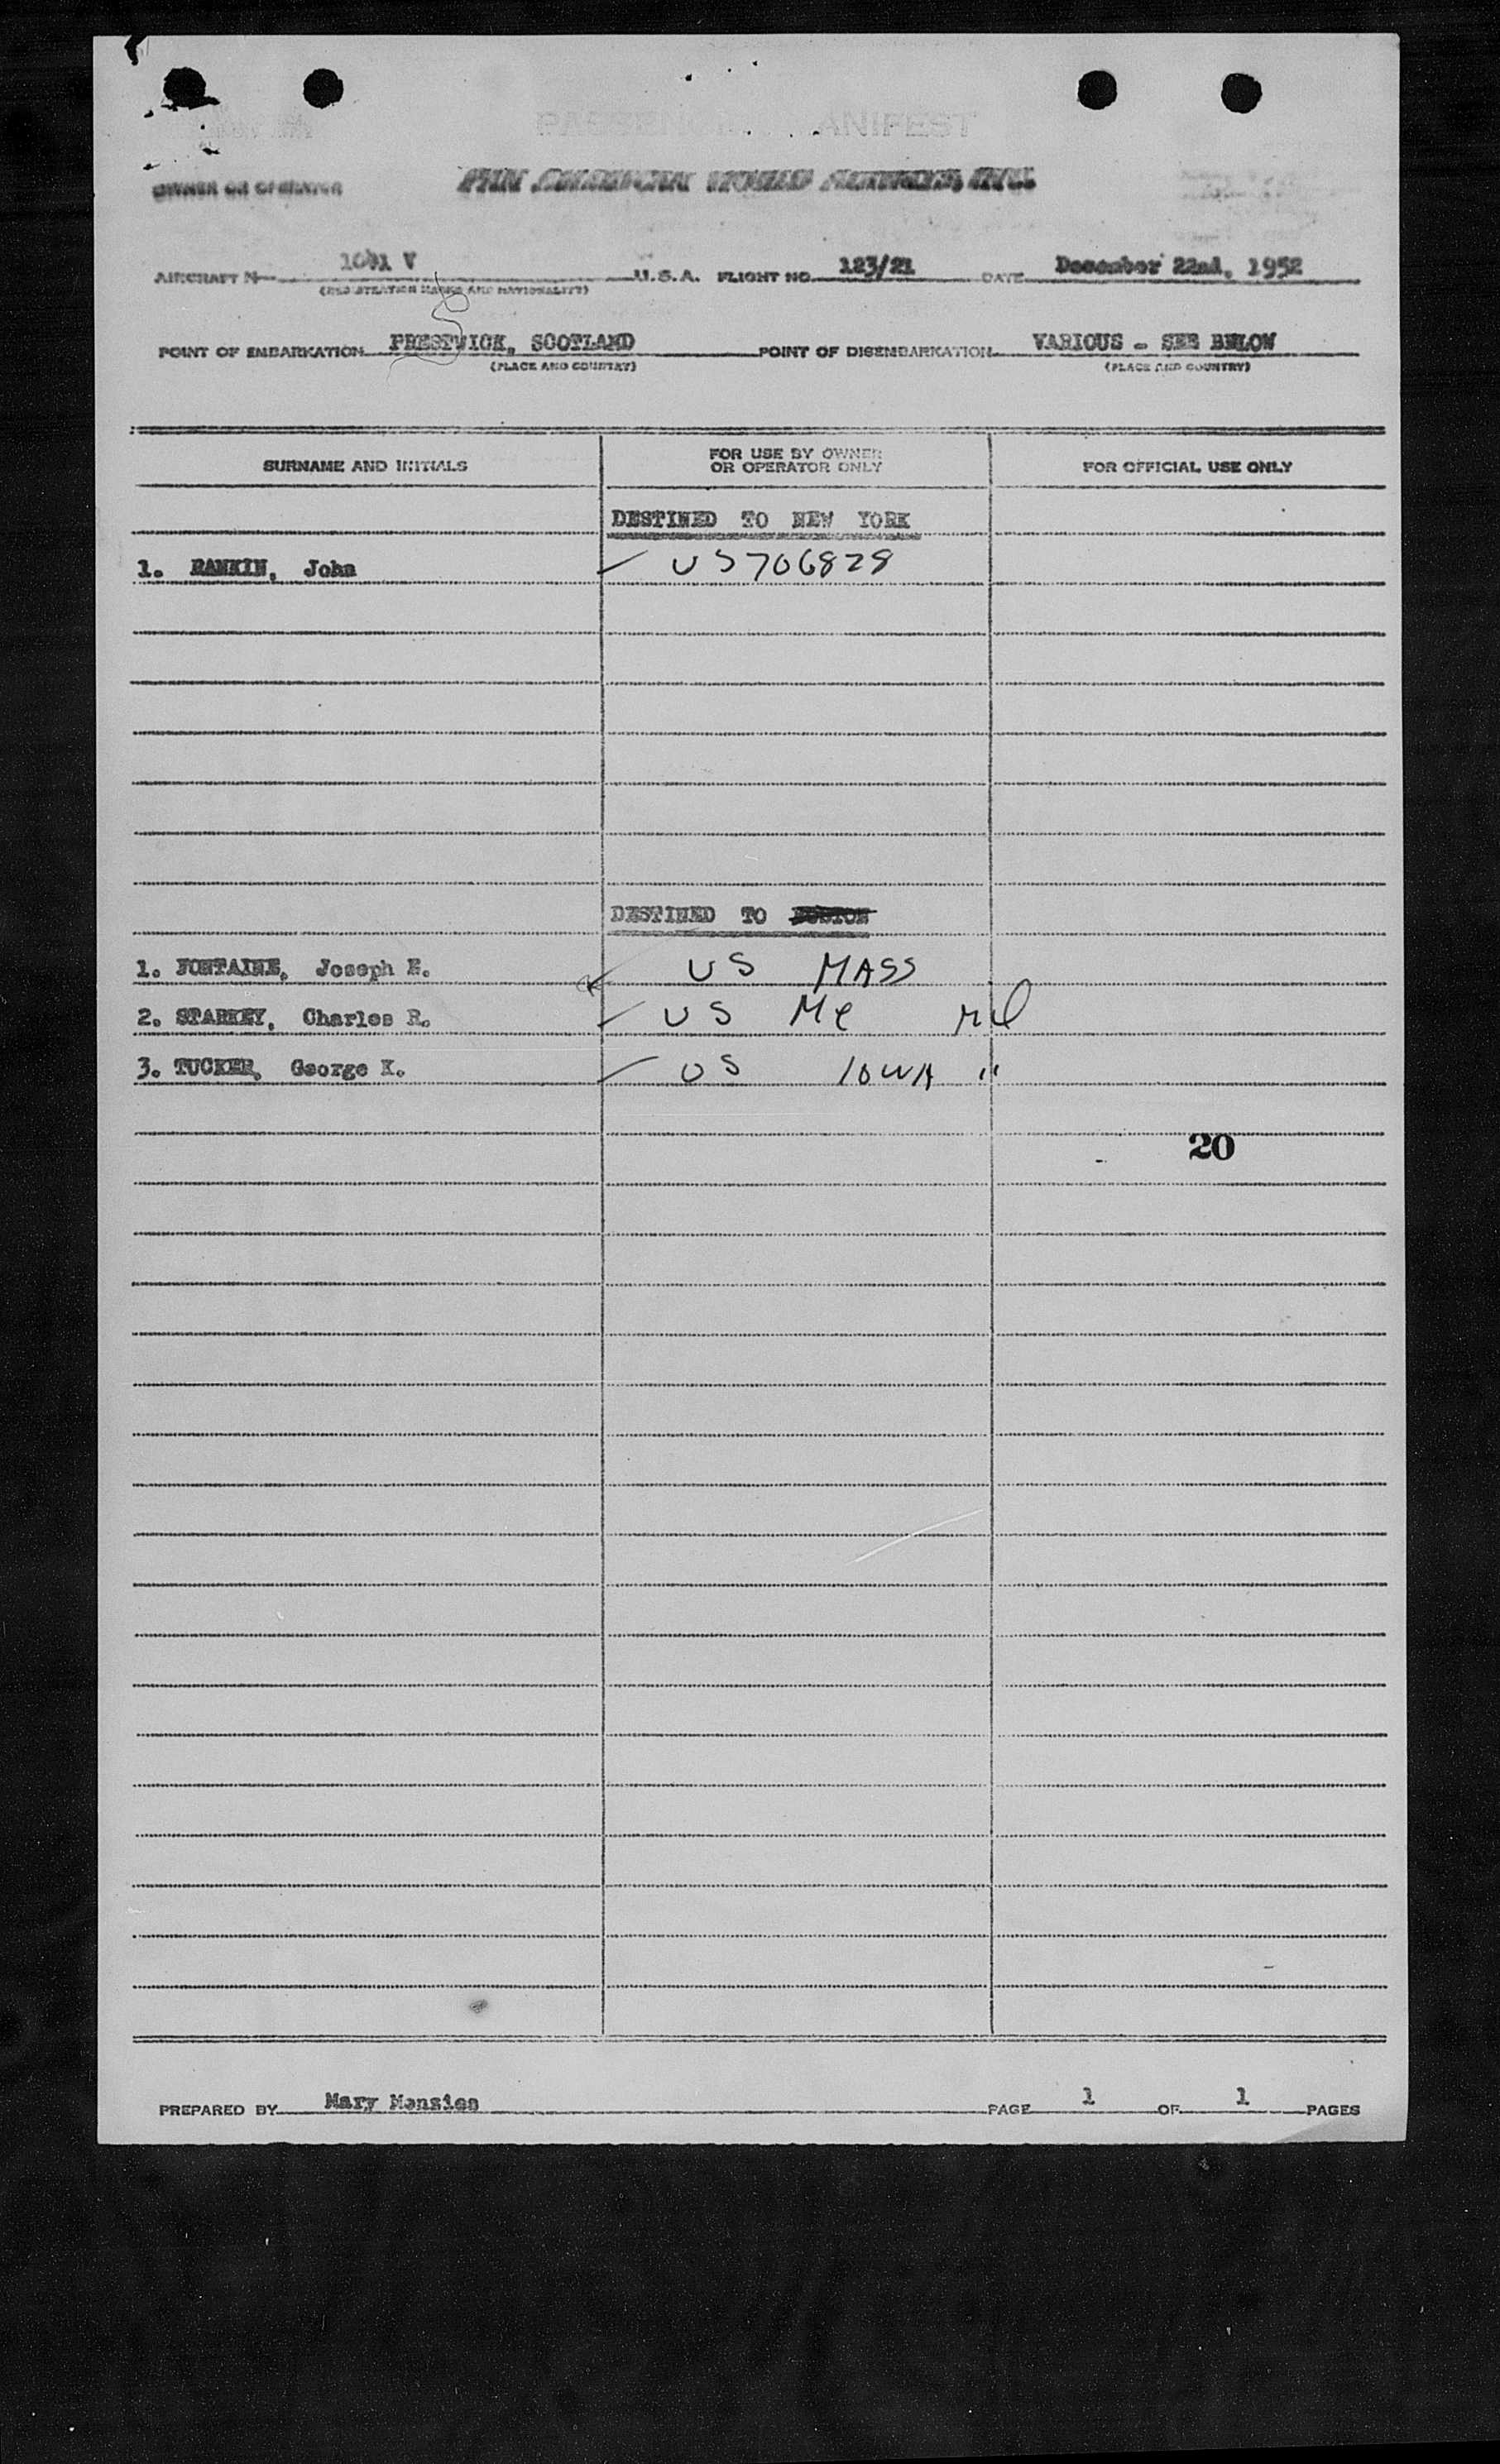 PASSENGER MANIFEST
OWNER OR OPERATOR PAN AMERICAN WORLD AIRWAYS, INC.
AIRCRAFT N 1041 V U.S.A. FLIGHT NO. 123/21 DATE December 22nd, 1952
(REGISTRATION MARKS AND NATIONALITY)
POINT OF EMBARKATION PRESTWICK, SCOTLAND POINT OF DISEMBARKATION VARIOUS - SEE BELOW
(PLACE AND COUNTRY) (PLACE AND COUNTRY)
SURNAME AND INITIALS FOR USE BY OWNER OR OPERATOR ONLY FOR OFFICIAL USE ONLY
DESTINED TO NEW YORK
1. RANKIN, John US706828
DESTINED TO BOSTON
1. FONTAINE, Joseph E. US MASS
2. STARKEY, Charles R. US Me
3. TUCKER, George K. US IOWA "
20
PREPARED BY Mary Menzies PAGE 1 OF 1 PAGES